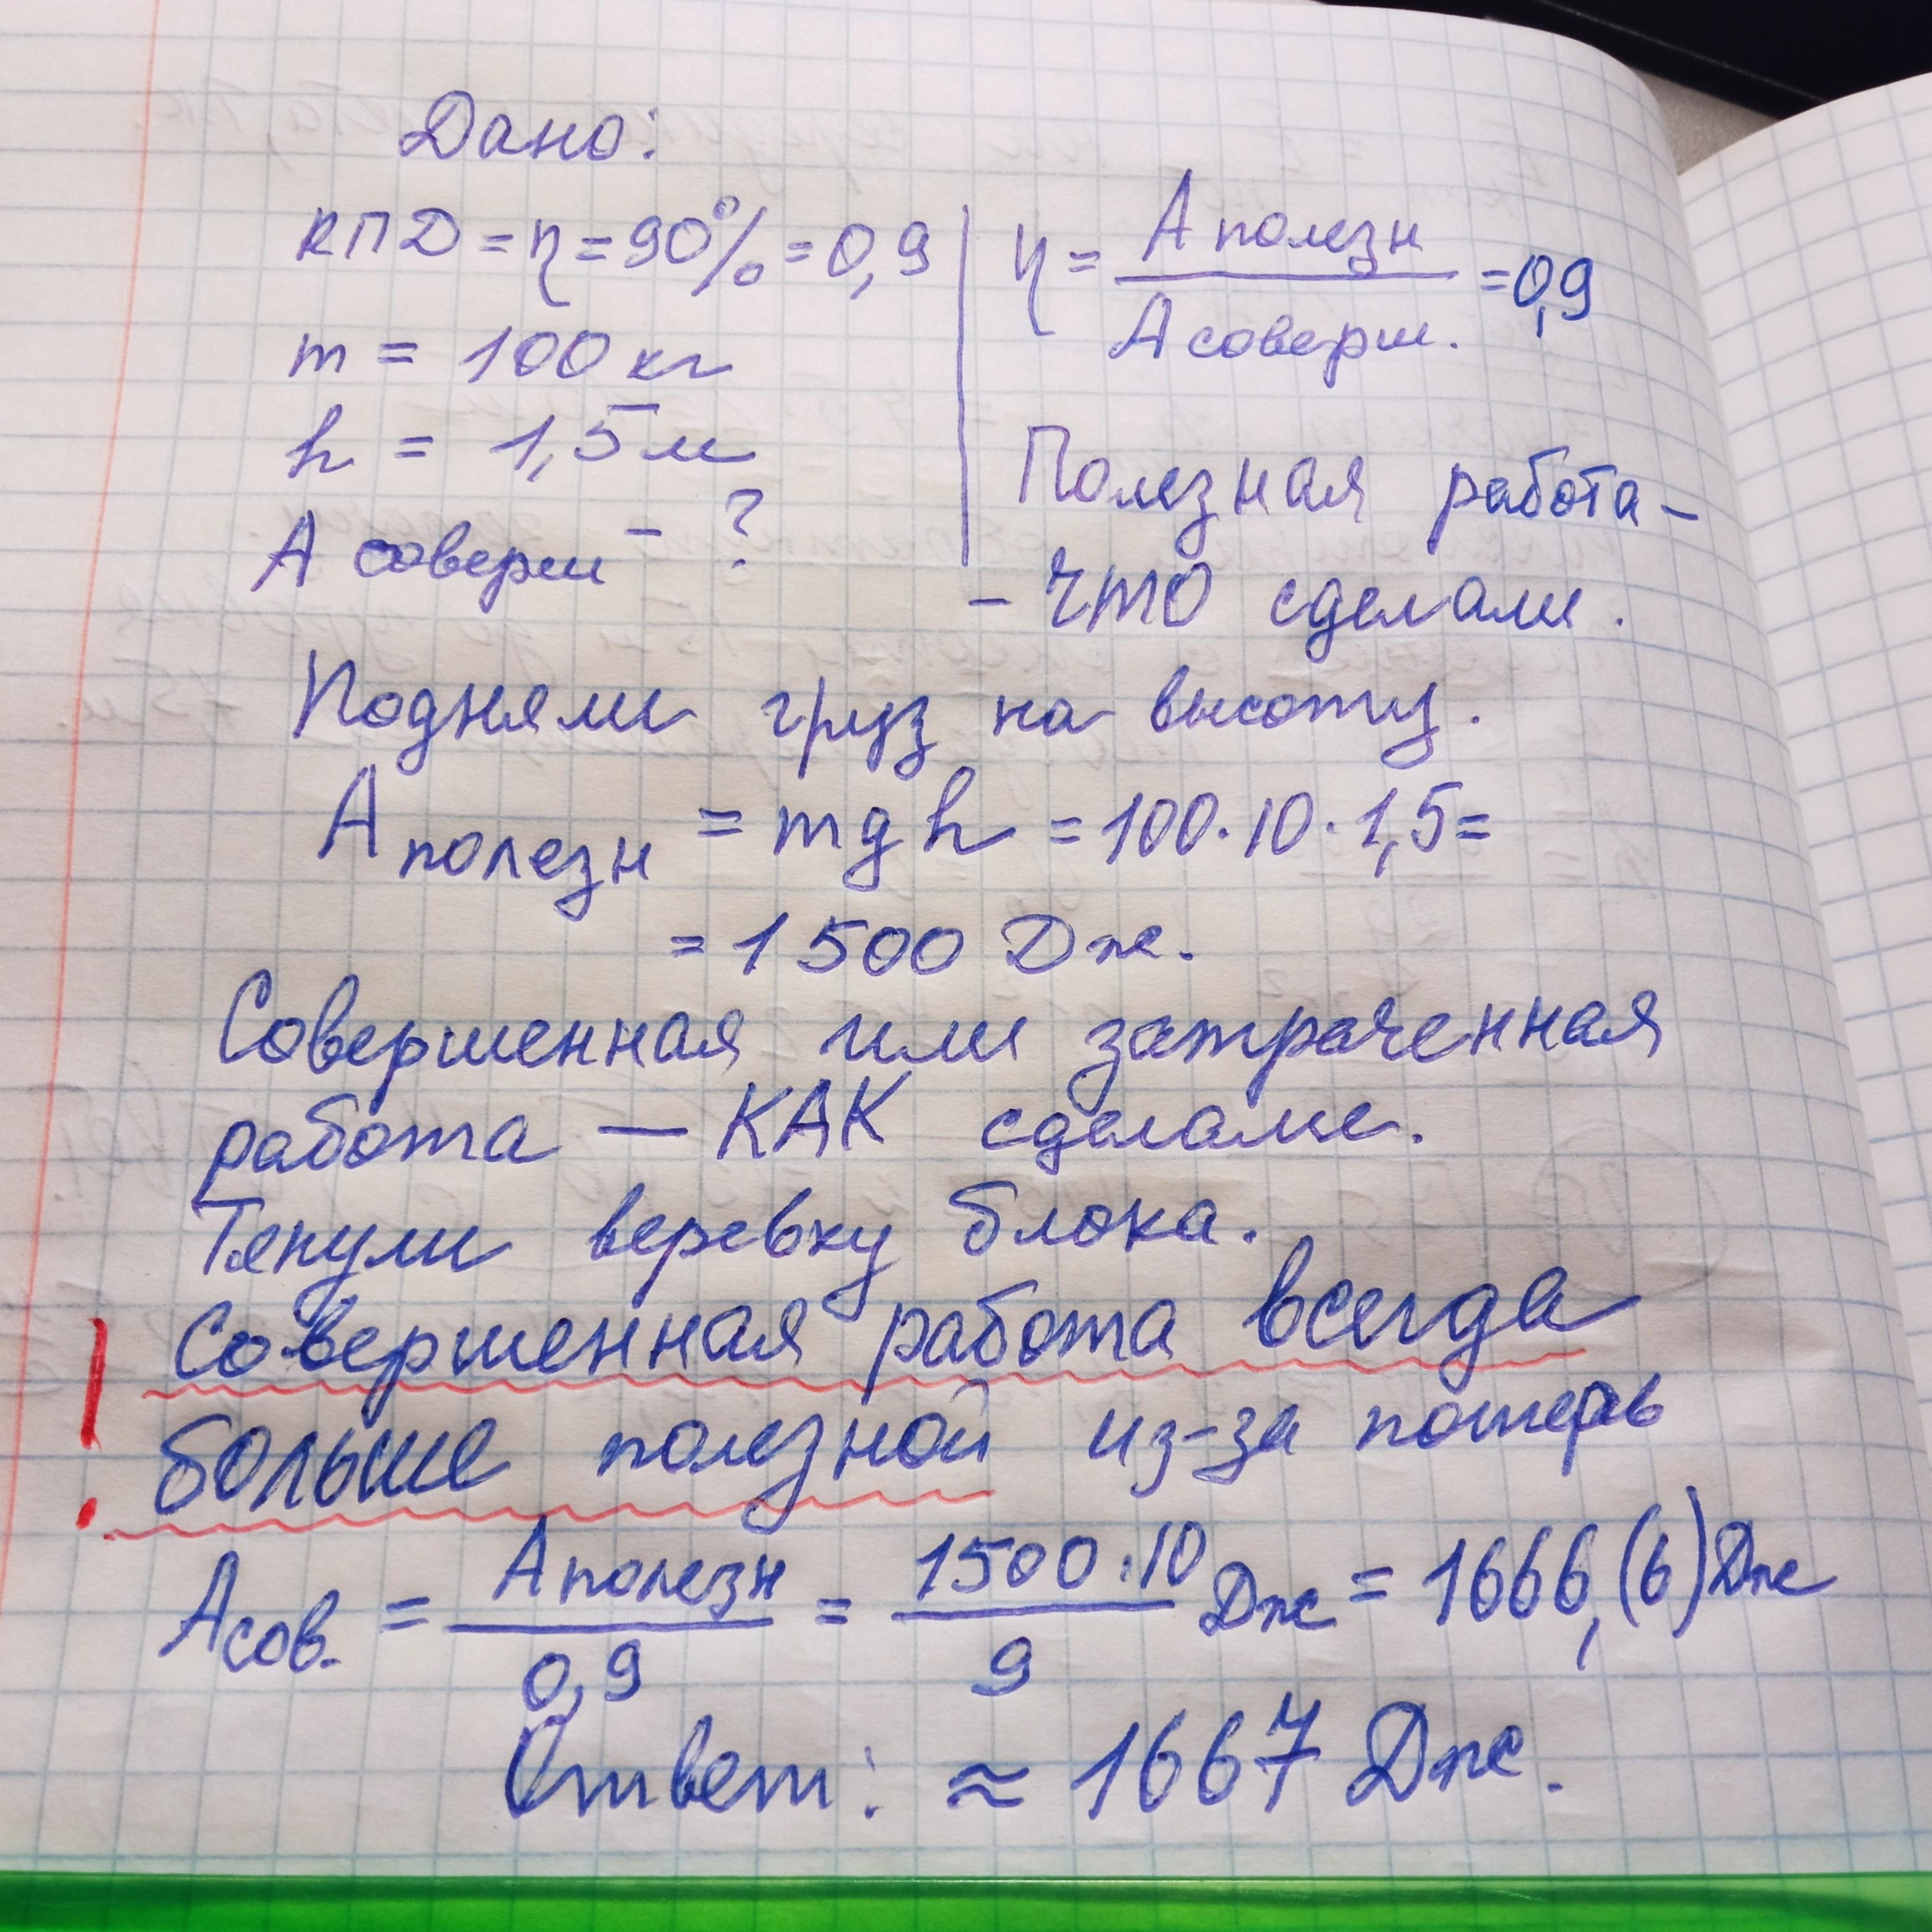 Дано:
КПД = η = 90% = 0,9
η = А полезн / А соверш. = 0,9
m = 100 кг
h = 1,5 м
А соверш - ?
Полезная работа -
- ЧТО сделали.
Подняли груз на высоту.
А полезн = mgh = 100 · 10 · 1,5 =
= 1500 Дж.
Совершенная или затраченная
работа — КАК сделали.
Тянули веревку блока.
Совершенная работа всегда
! больше полезной из-за потерь
Асов. = А полезн / 0,9 = 1500 · 10 / 9 Дж = 1666,(6) Дж
Ответ: ≈ 1667 Дж.